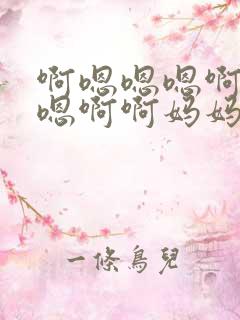 啊嗯嗯嗯啊
嗯啊啊妈妈
一條鳥兒